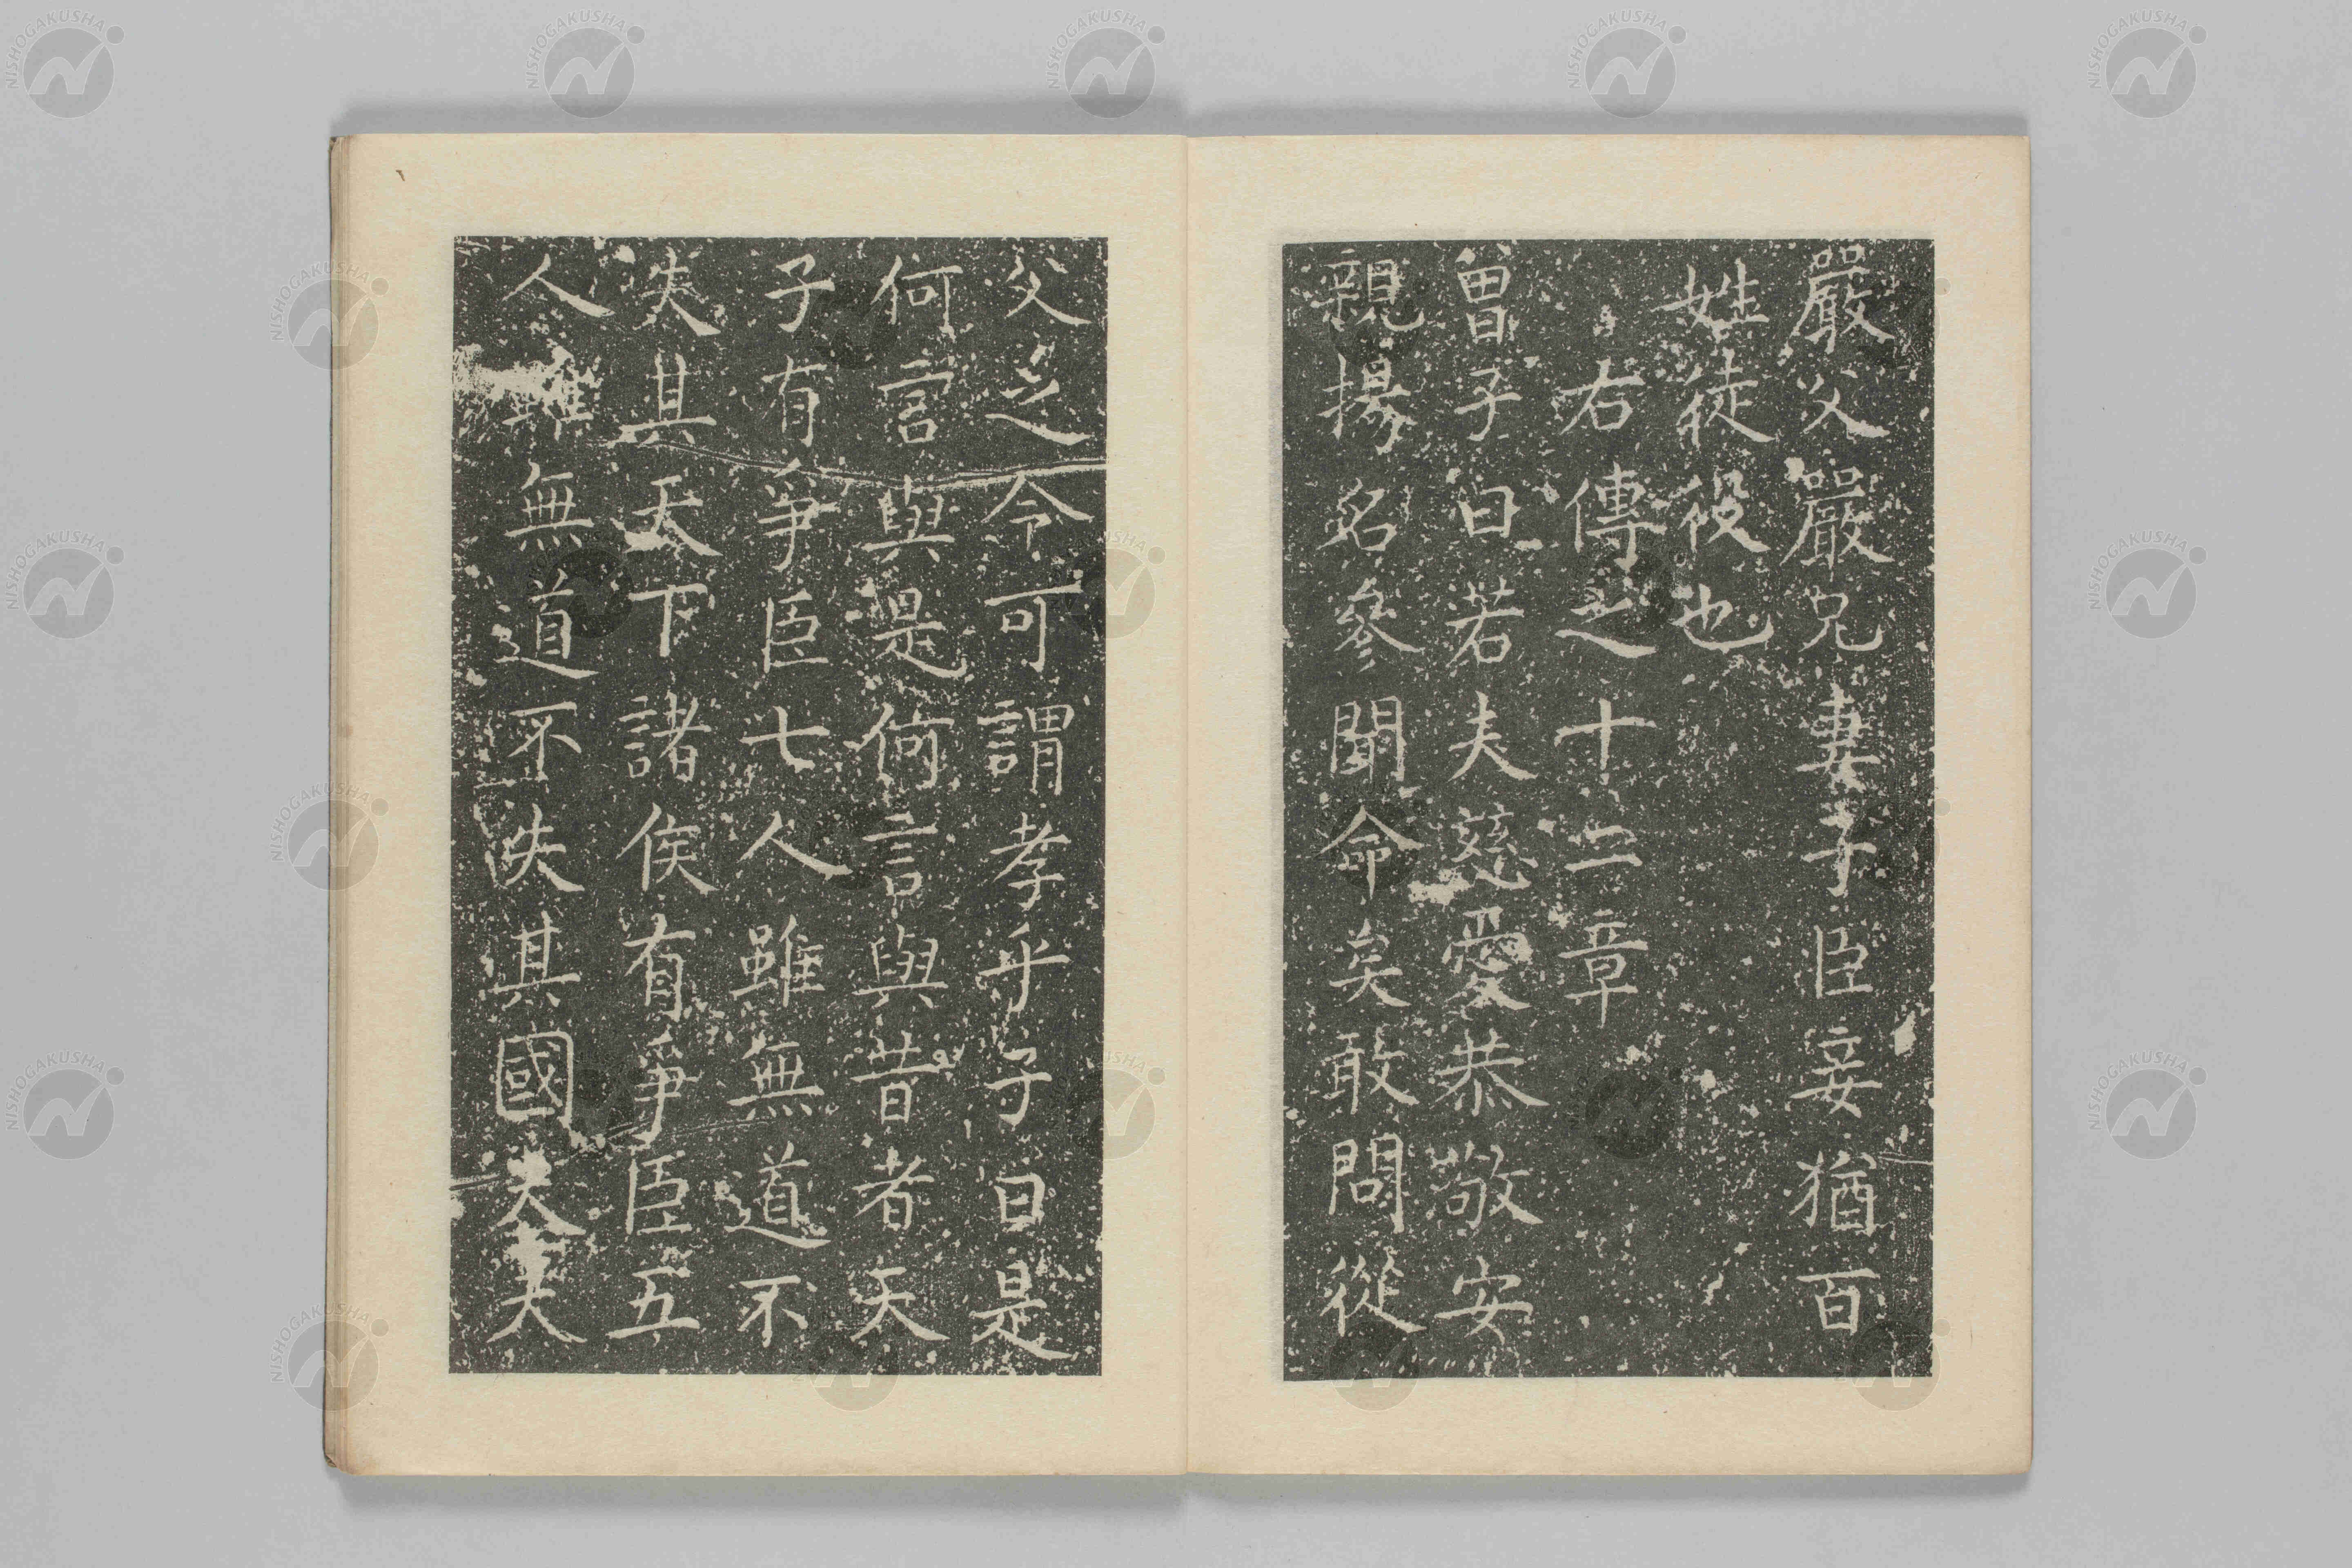 嚴父嚴兄妻子臣妾猶百
姓徒役也
右傳之十二章
曾子曰若夫慈愛恭敬安
親揚名參聞命矣敢問從
父之令可謂孝乎子曰是
何言與是何言與昔者天
子有爭臣七人雖無道不
失其天下諸侯有爭臣五
人雖無道不失其國大夫
NISHOGAKUSHA